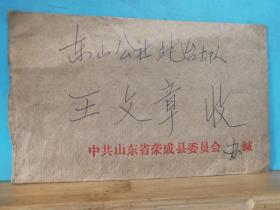 东山公社北台大队
王文章 收
中共山东省荣成县委员会办缄